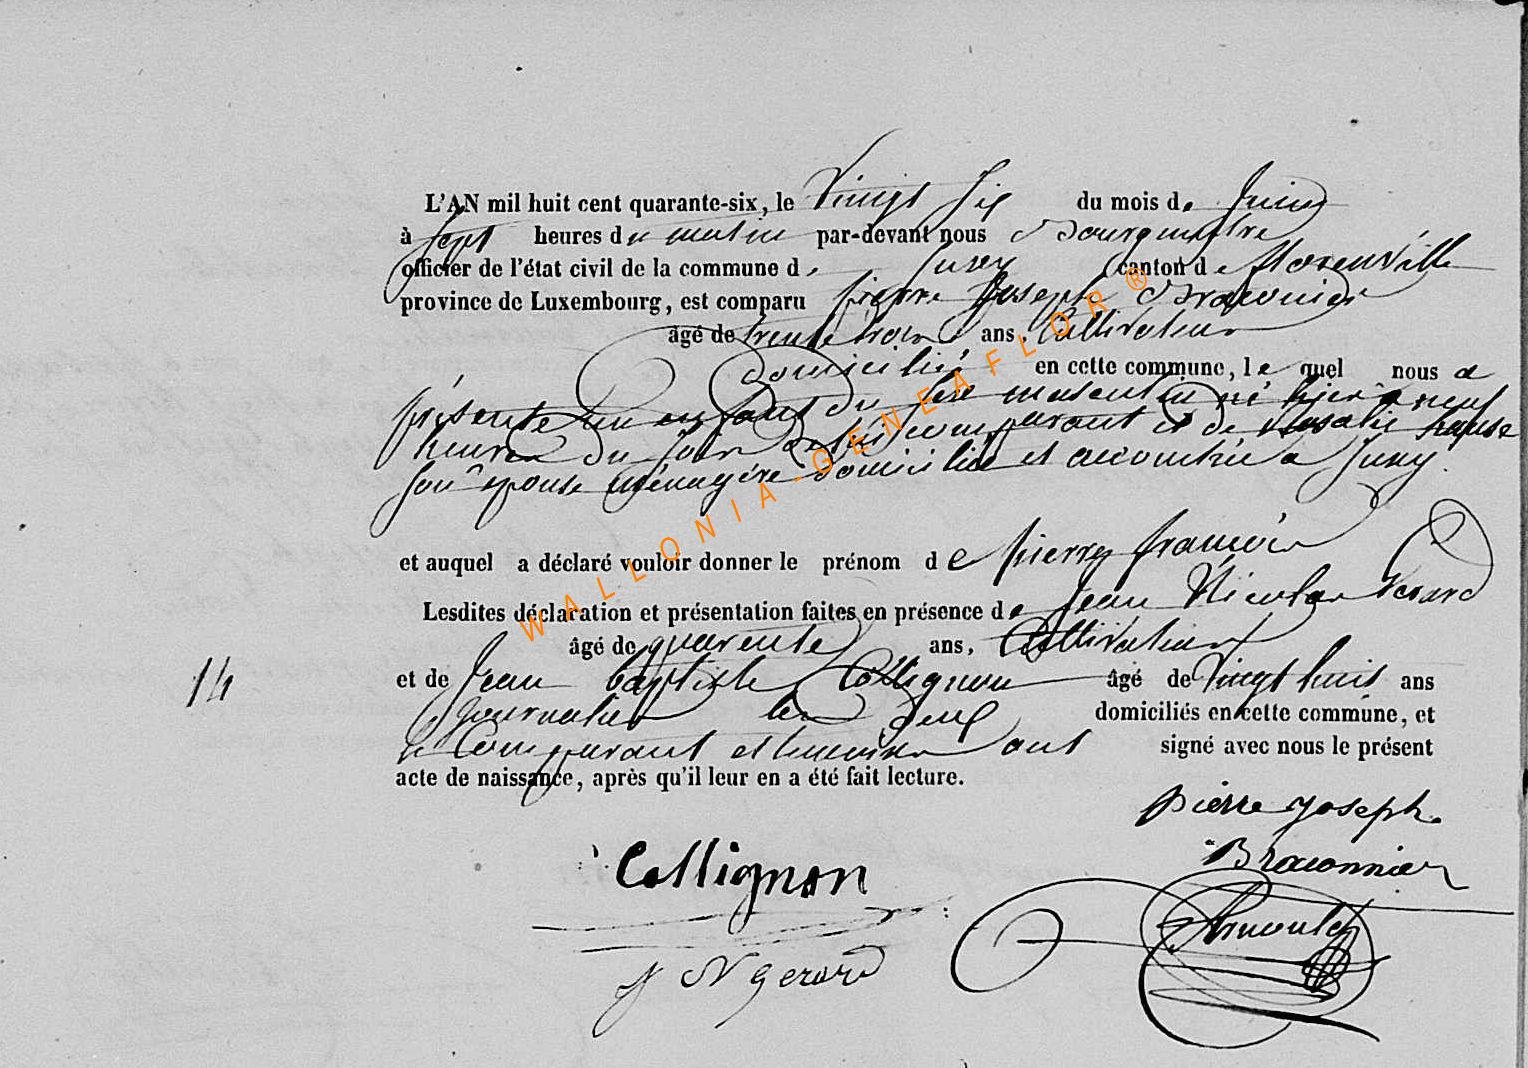 L'AN mil huit cent quarante-six, le Vingt Six du mois de Juin
à Sept heures du matin par-devant nous Bourgmestre
officier de l'état civil de la commune de Juzey canton de florenville
province de Luxembourg, est comparu pierre Joseph Braconnier
âgé de trente trois ans, Cultivateur
domicilié en cette commune, le quel nous a
présenté un enfant du sexe masculin né hier à neuf
heures du soir de lui comparant et de Rosalie
son épouse ménagère domiciliée et accouchée a
et auquel a déclaré vouloir donner le prénom de pierre françois
Lesdites déclaration et présentation faites en présence de Jean Nicolas Gerard
âgé de quarente ans, Cultivateur
et de Jean baptiste Collignon âgé de Vingt huit ans
Journalier les deux domiciliés en cette commune, et
14
le Comparant et temoins ont signé avec nous le présent
acte de naissance, après qu'il leur en a été fait lecture.
pierre joseph
Braconnier
Collignon
Arnould
J N gerard
WALLONIA-GENEAFLOR®